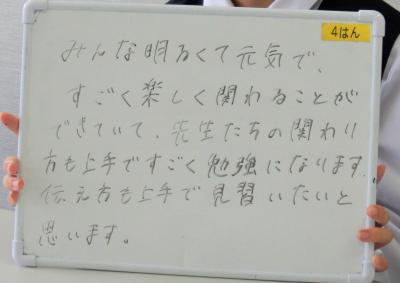 4はん
みんな明るくて元気で、
すごく楽しく関わることが
できていて、先生たちの関わり
方も上手ですごく勉強になります。
伝え方も上手で見習いたいと
思います。